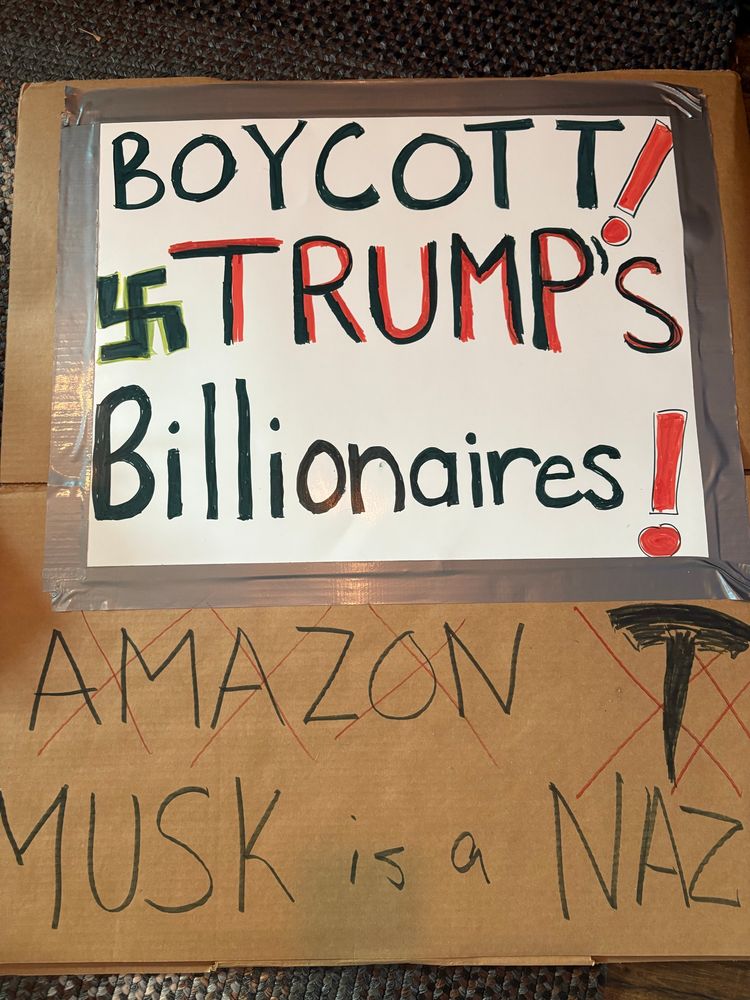 BOYCOTT!
TRUMP'S
Billionaires!
AMAZON
MUSK is a NAZ